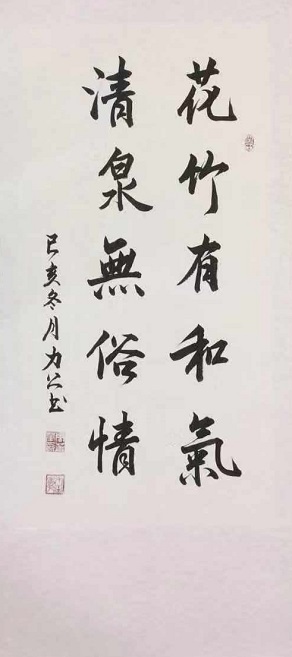 花竹有和氣
清泉無俗情
己亥冬月力公书